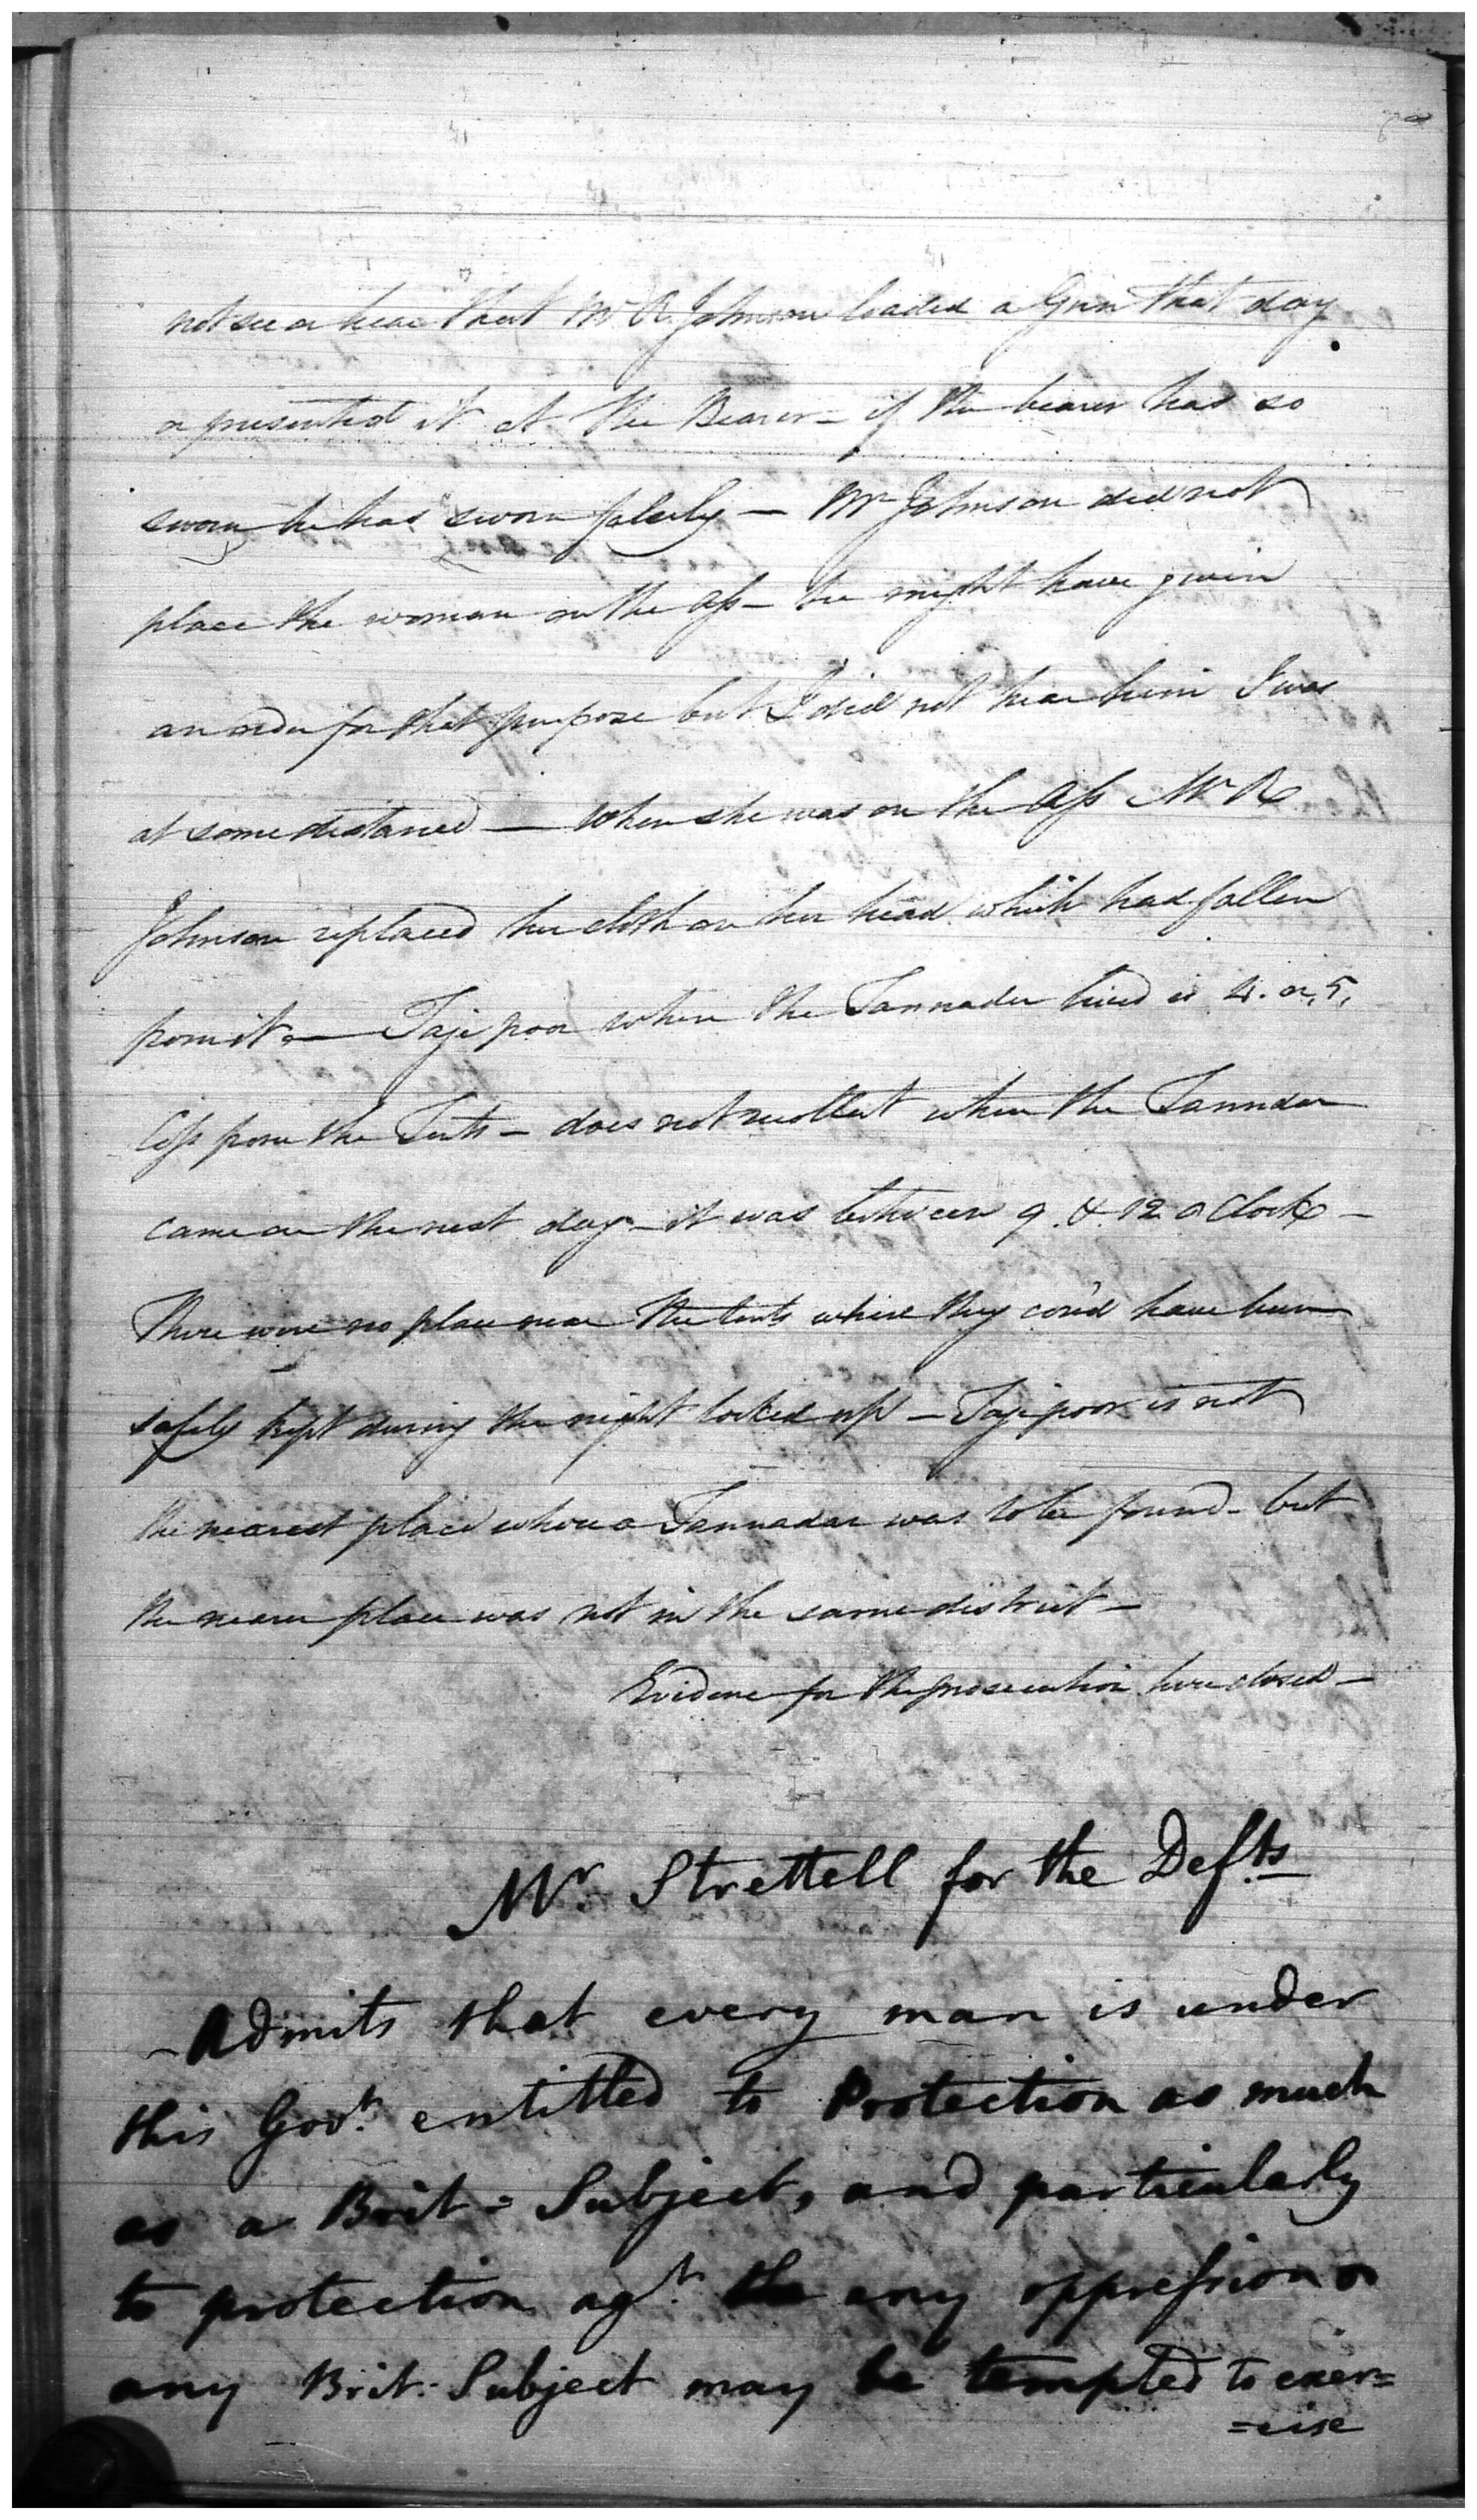 not see or hear that Mr R. Johnson loaded a Gun that day
or presented it at the Bearer - if the bearer has so
sworn he has sworn falsely - Mr Johnson did not
place the woman on the Ass - he might have given
an order for that purpose but I did not hear him I was
at some distance - when she was on the Ass Mr R
Johnson replaced her cloth on her head which had fallen
from it - Tajepoor where the Tannader lived is 4. or 5.
Coss from the Tents - does not recollect when the Tannadar
came on the next day - it was between 9. & 12 o Clock -
There were no place near the tents where they cou'd have been
safely kept during the night locked up - Tajepoor is not
the nearest place where a Tannadar was to be found - but
the nearer place was not in the same district -
Evidence for the prosecution here closed -
Mr. Strettell for the Defts
Admits that every man is under
this Govt. entitled to Protection as much
as a Brit = Subject, and particularly
to protection agt. any oppression
any Brit: Subject may be tempted to exer=
=cise